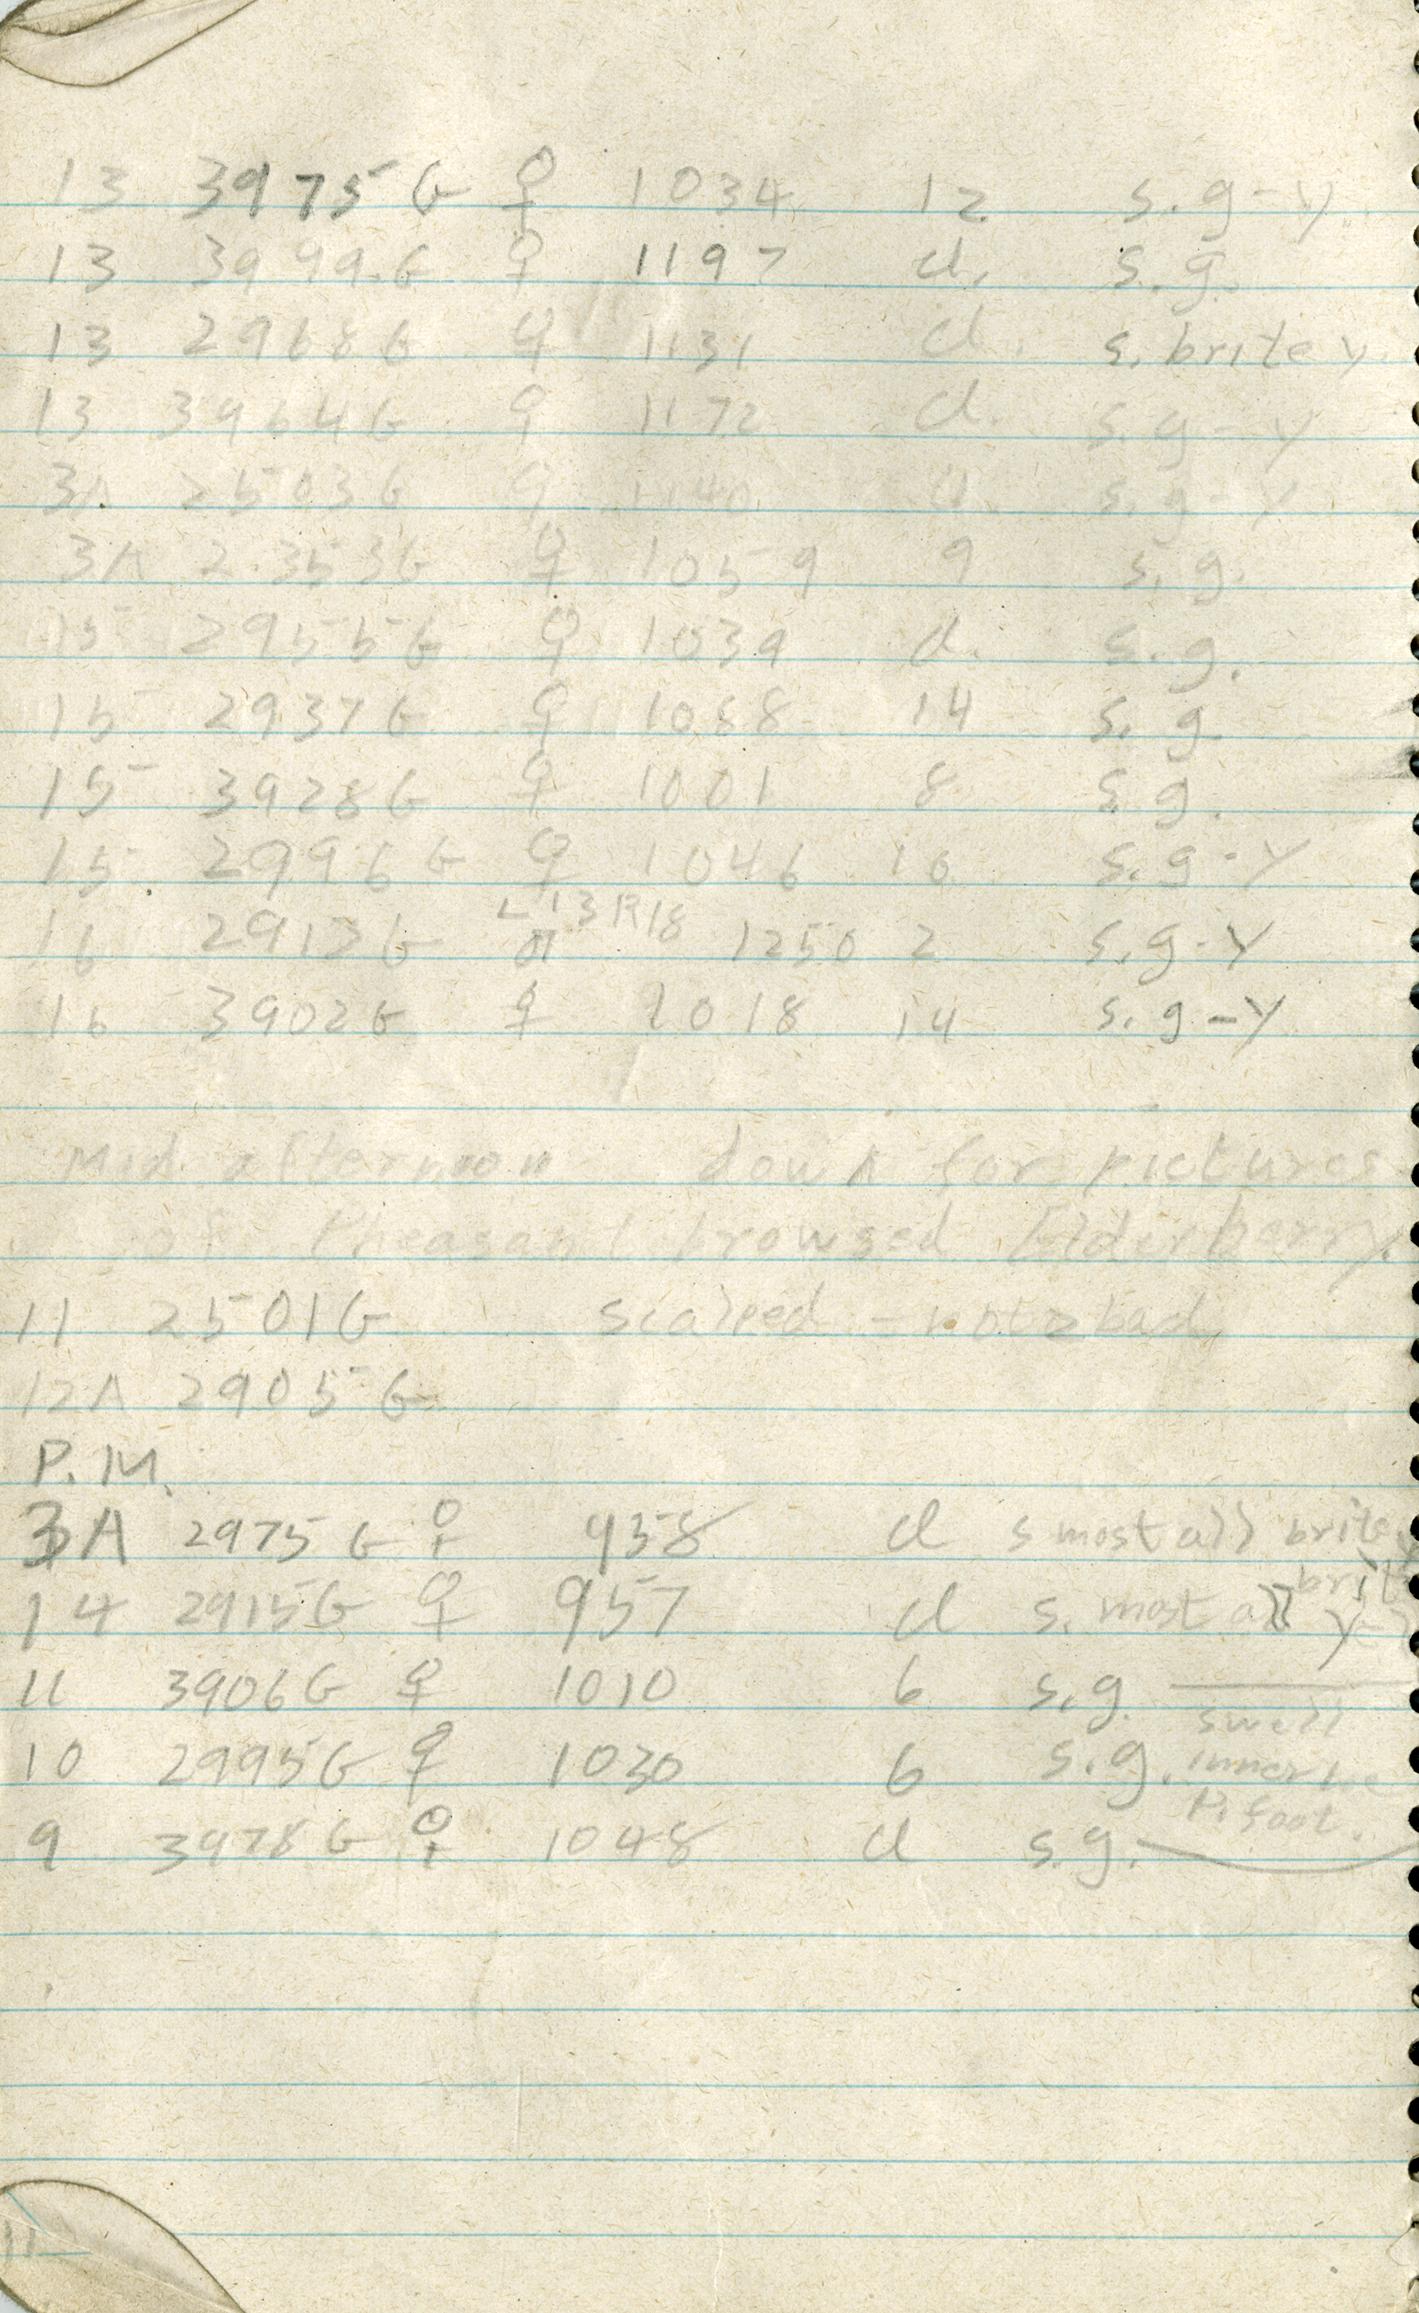 13 3975G ♀ 1034 12 s. g-y.
13 3999.G ♀ 1197 d. s. g.
13 2968G ♀ 1131 d. s. brite y.
13 3964G ♀ 1172 d. s. g-y
3A 2503G ♀ 1140 d. s. g-y
3A 2353G ♀ 1059 9 s. g.
15 2955G ♀ 1039 d. s. g.
15 2937G ♀ 1088 14 s. g.
15 3928G ♀ 1001 8 s. g.
15 2996G ♀ 1046 16 s. g-y
L 13 R18
16 2912G ♂ 1250 2 s. g-y
16 3902G ♀ 1018 14 s. g-y
Mid afternoon down for pictures
of Pheasant browsed Elderberry.
11 2501G scalped - not bad
12A 2905G
P.M.
3A 2975G ♀ 958 d s most all brite
14 2915G ♀ 957 d s. most all brite y-
11 3906G ♀ 1010 6 s. g.
10 2995G ♀ 1030 6 s. g. swell
inner
9 3978G ♀ 1048 d s. g. foot.